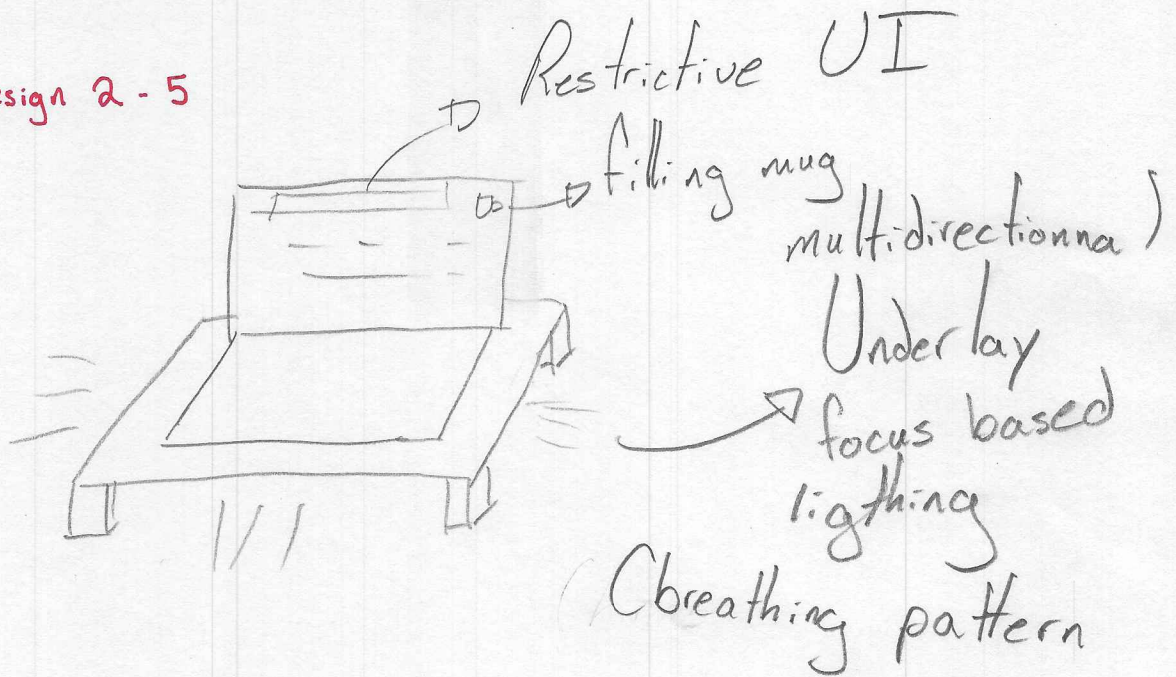 esign 2 - 5
Restrictive UI
filling mug
multidirectionnal
Underlay
focus based
ligthing
(breathing pattern